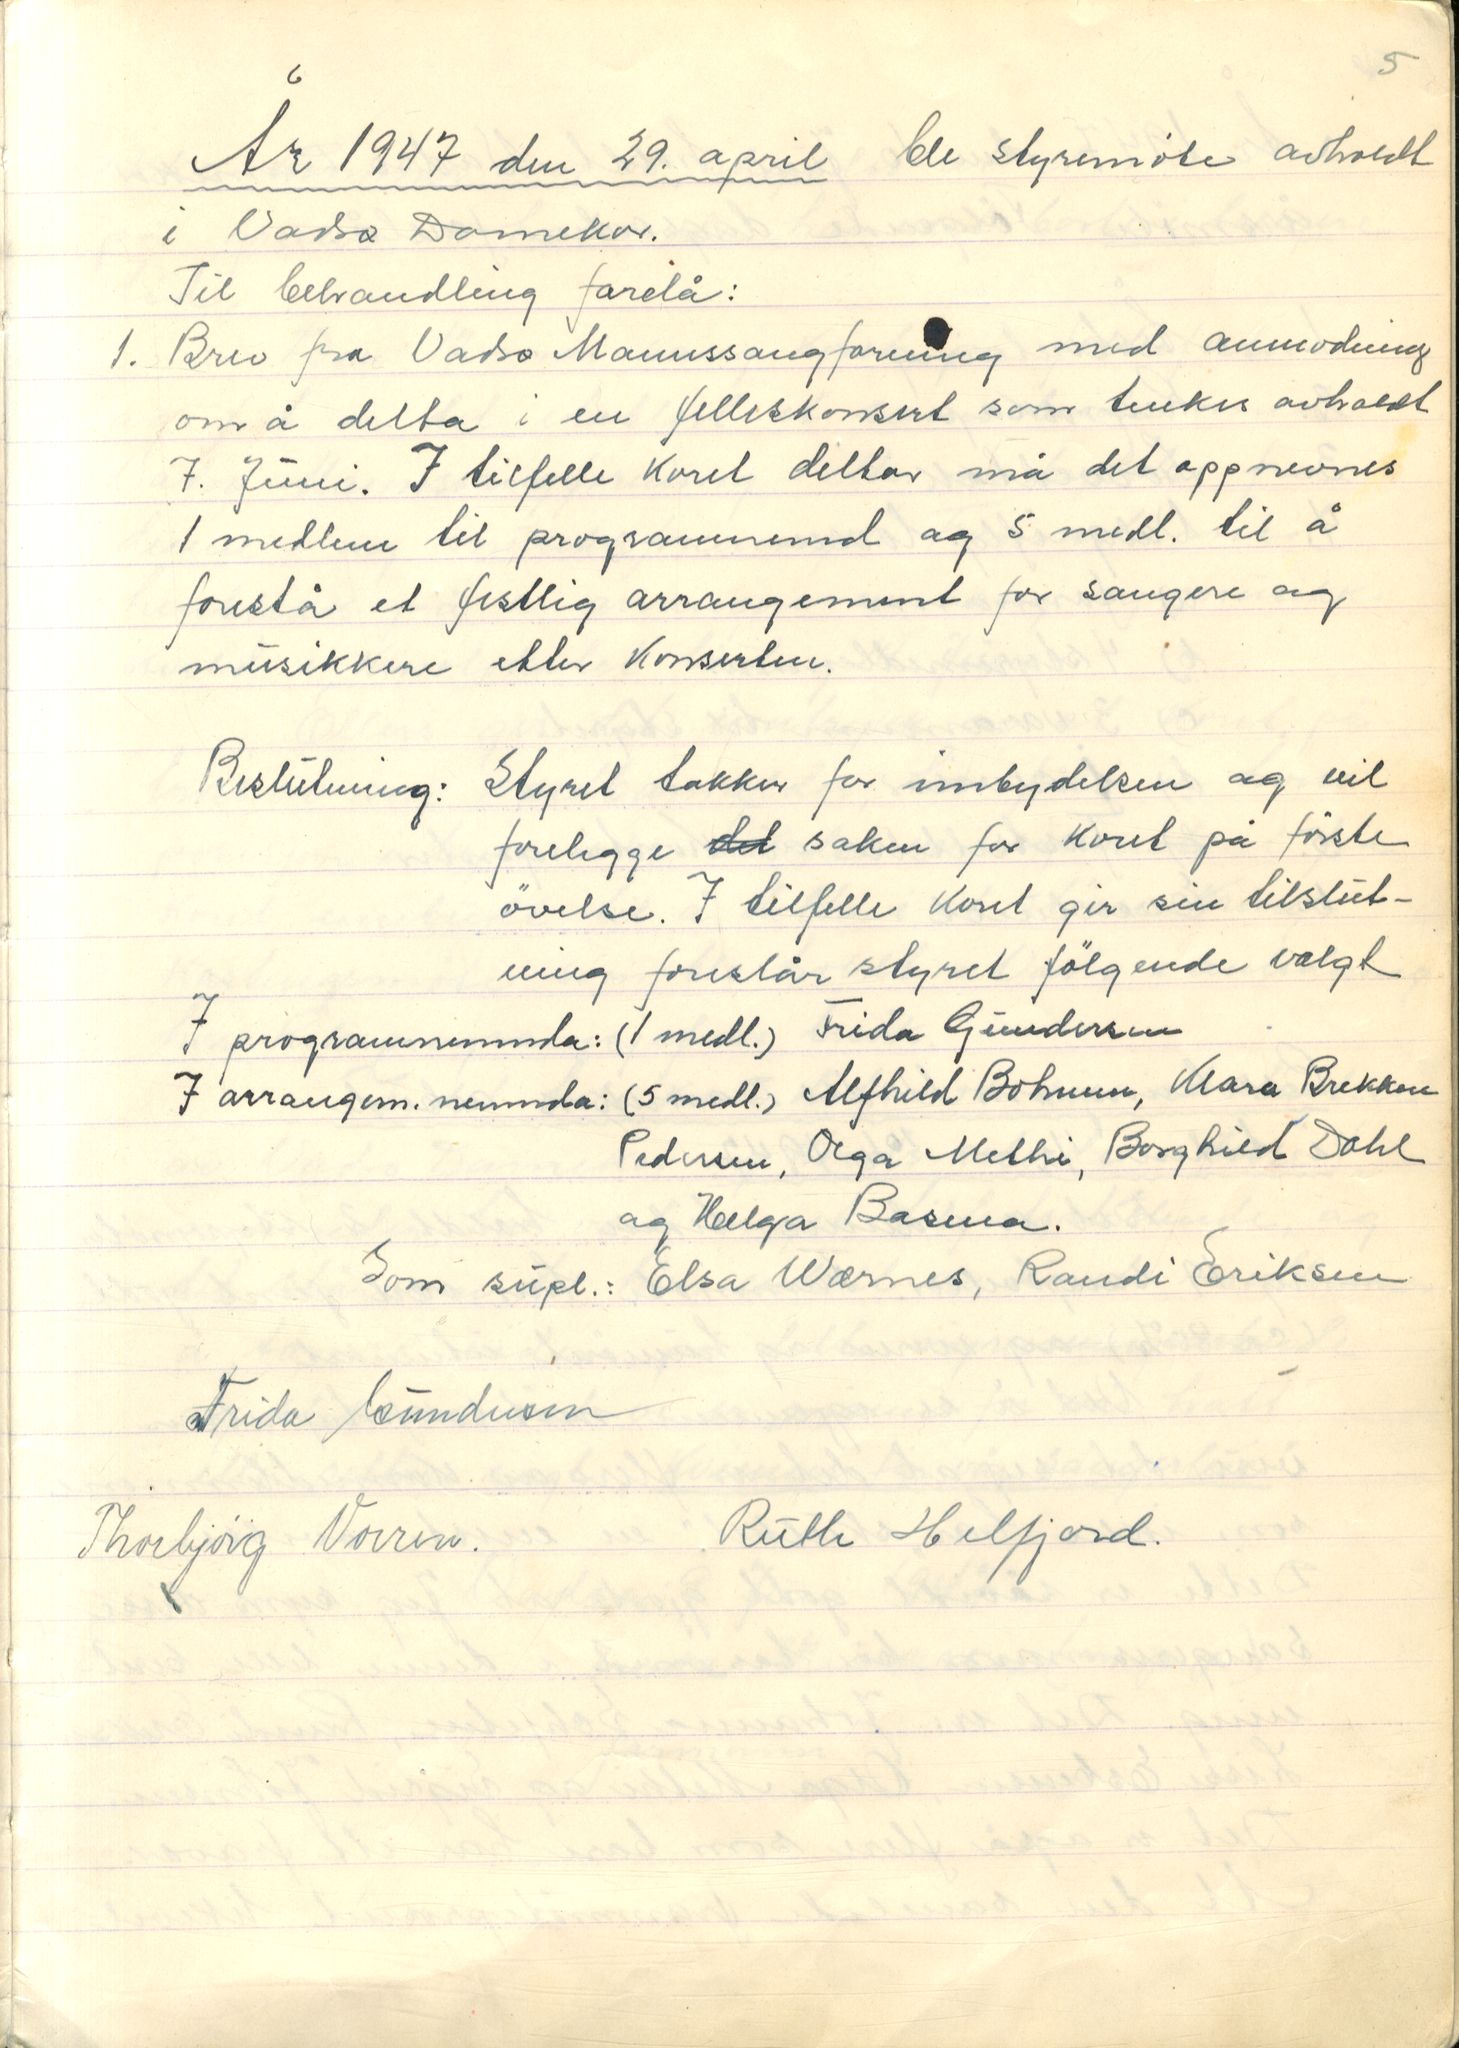 5
6
År 1947 den 29. april ble styremöte avholdt
i Vadsø Damekor.
Til behandling forelå:
1. Brev fra Vadsø Mannssangforening med anmodning
om å delta i en felleskonsert som tenkes avholdt
7. Juni. I tilfelle koret deltar må det oppnevnes
1 medlem til programnemd og 5 medl. til å
forestå et festlig arrangement for sangere og
musikkere etter konserten.
Beslutning: Styret takker for innbydelsen og vil
forelegge det saken for koret på förste
övelse. I tilfelle koret gir sin tilslut-
ning foreslår styret fölgende valgt
I programnemnda: (1 medl.) Frida Gundersen
I arrangem. nemnda: (5 medl.) Alfhild Bohmen, Klara Brekken
Pedersen, Olga Methi, Borghild Dahl
og Helga Basma.
Som supl.: Elsa Wærnes, Randi Eriksen
Frida Gundersen
Thorbjörg Vorren. Ruth Helfjord.